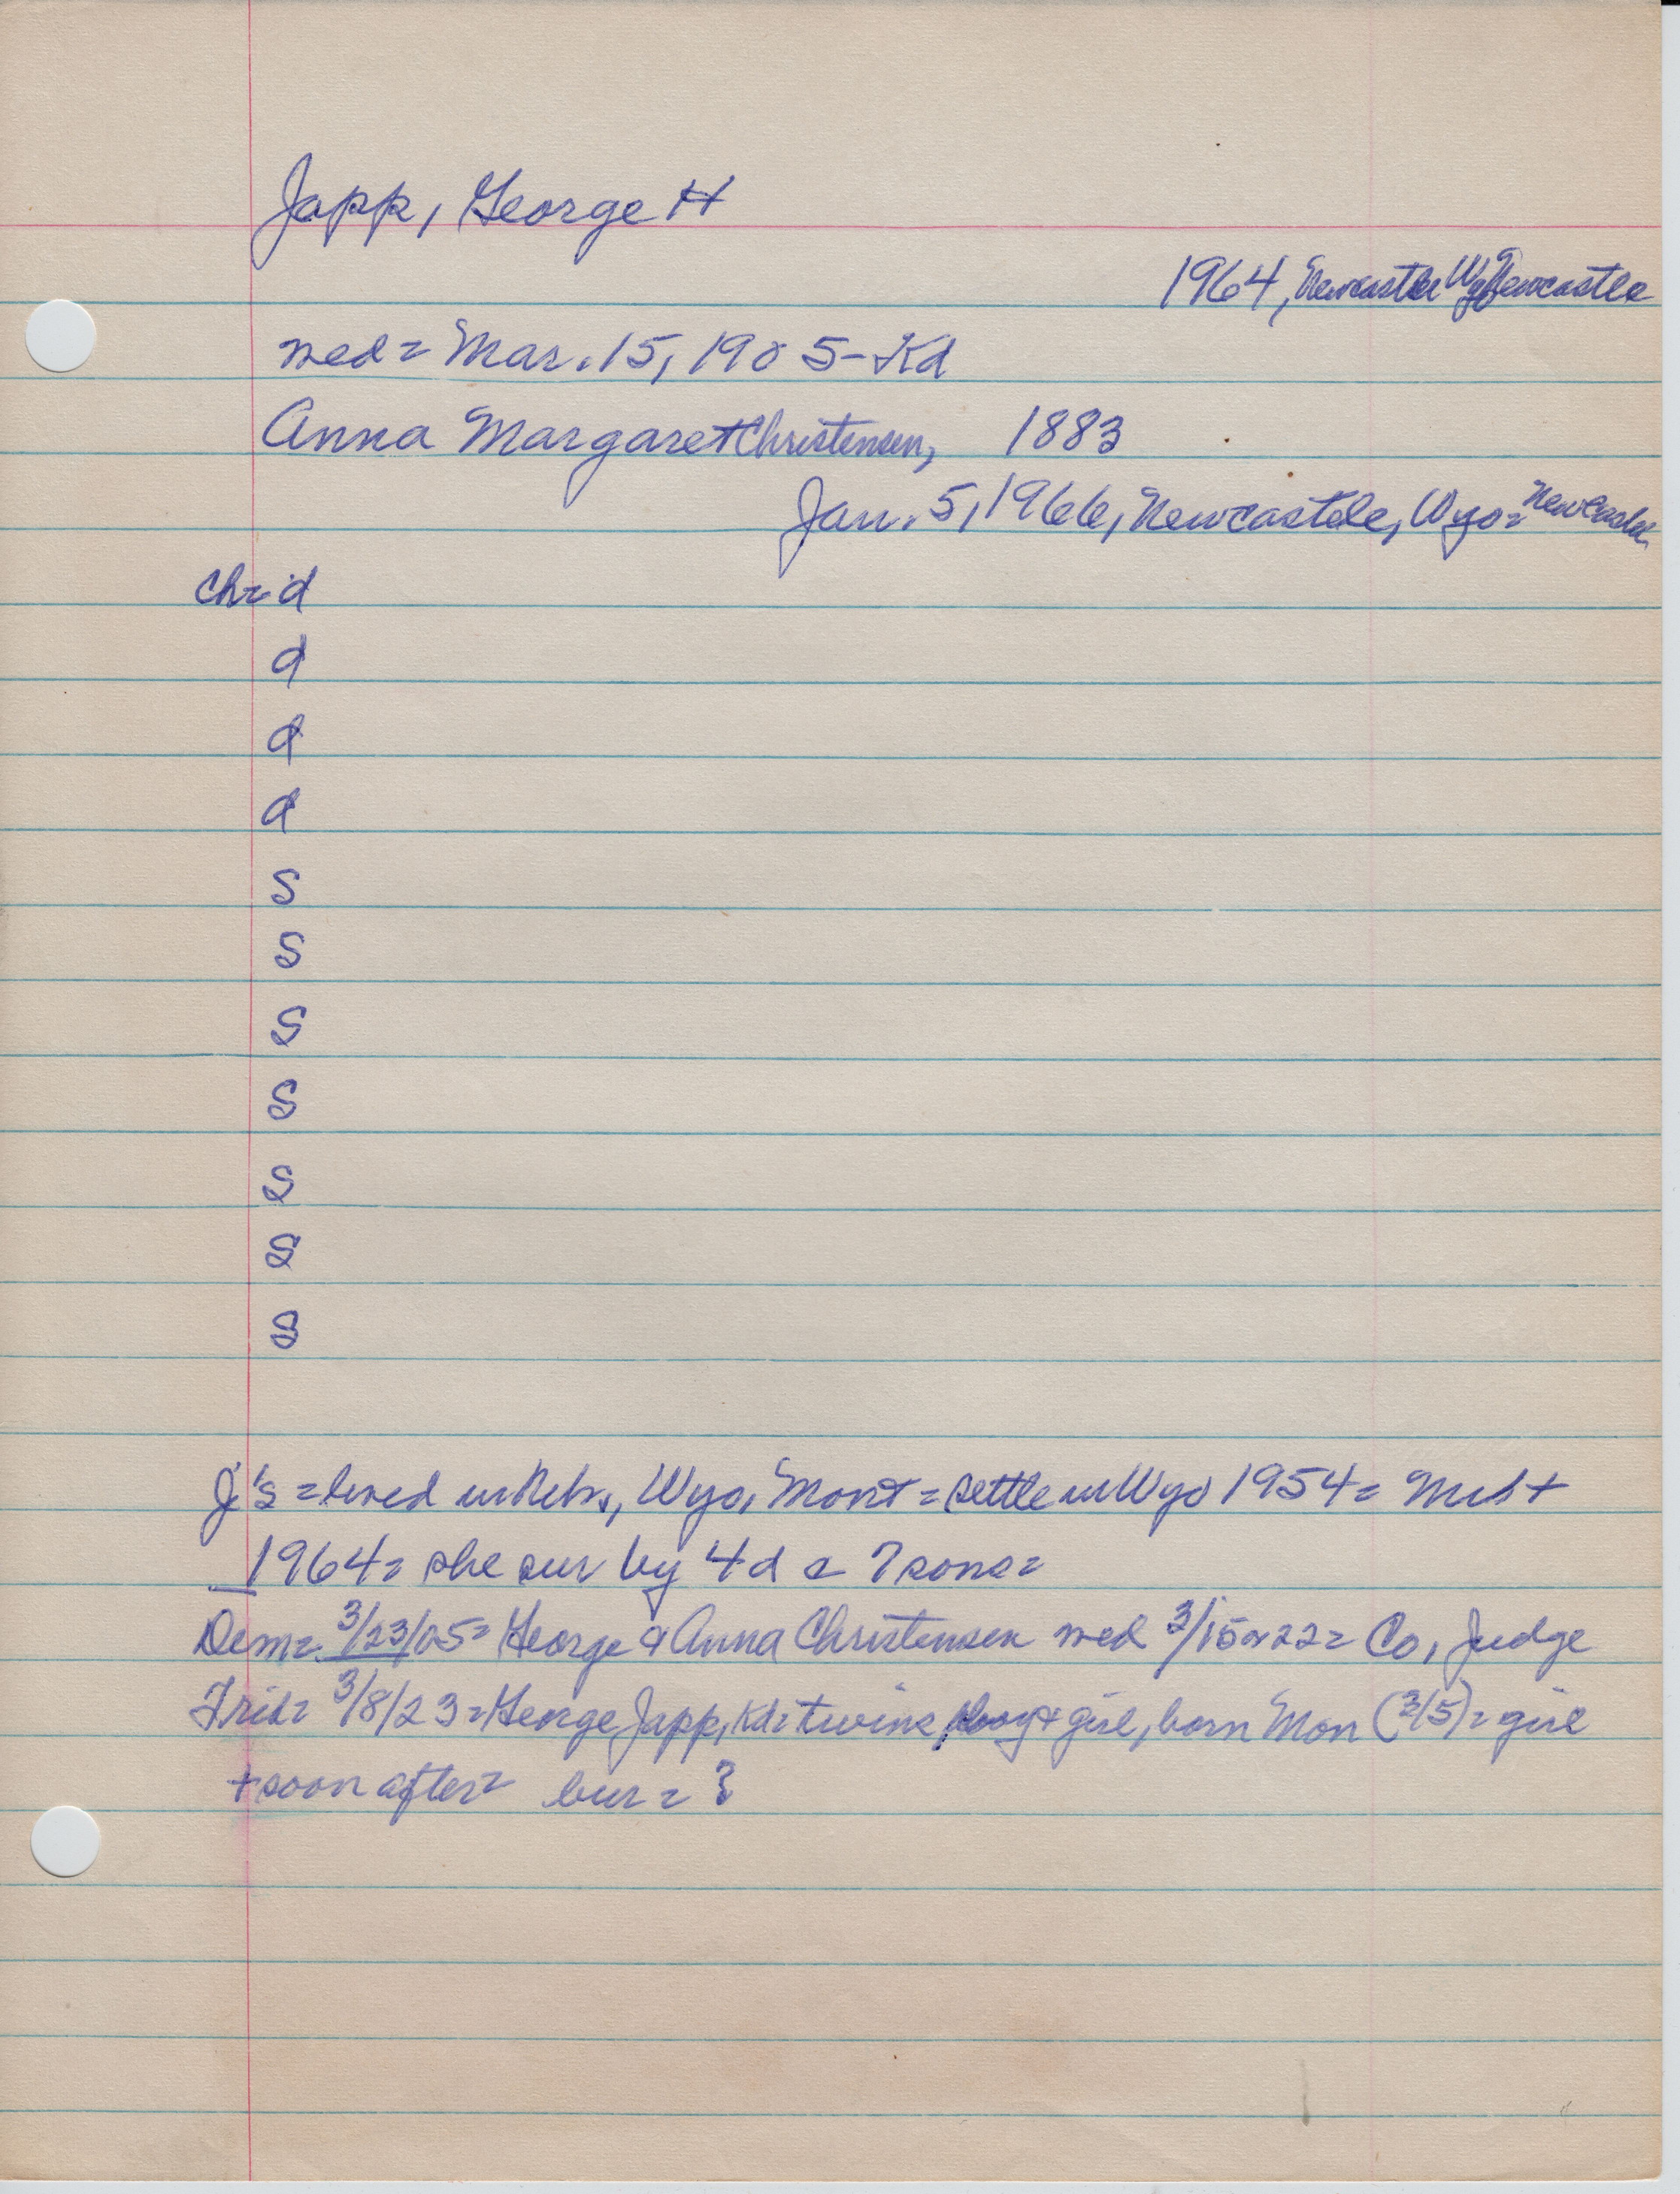 Japp, George H
1964, Newcastle Wyo Newcastle
wed = Mar. 15, 1905 - Kd
Anna Margaret Christensen, 1883
Jan. 5, 1966, Newcastle, Wyo = Newcastle
Ch = d
d
d
d
s
s
s
s
s
s
s
J's = lived in Nebr, Wyo, Mont = settle in Wyo 1954 = +
1964 = she sur by 4 d 7 sons =
Dem = 3/23/05 = George & Anna Christensen wed 3/15 22 = Co, Judge
3/8/23 = George Japp, Kd = twins, boy + girl, born Mon (3/5) = girl
+ soon after = bur = ?